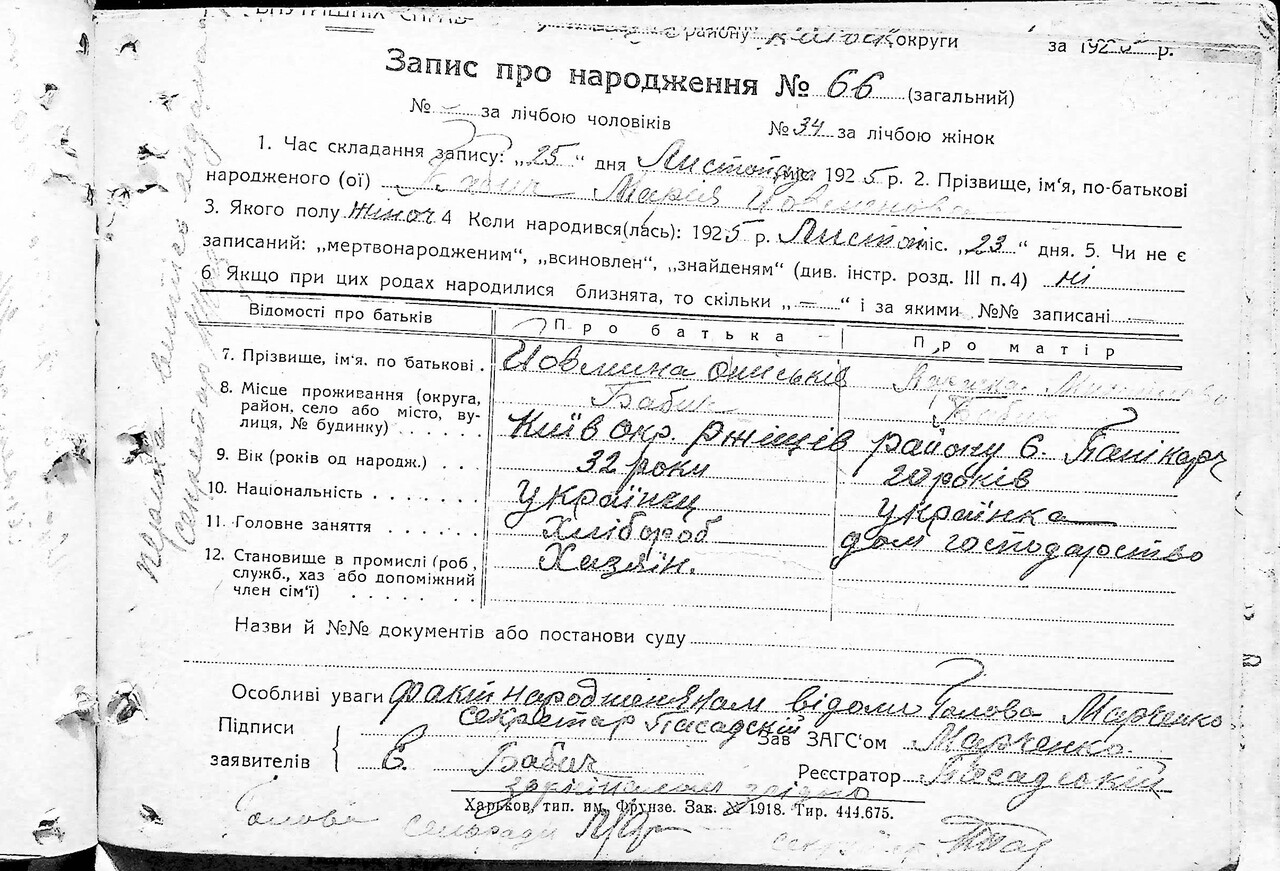 ВНУТРІШНІХ СПРАВ району округи за 1925 р.
Запис про народження № 66 (загальний)
№ — за лічбою чоловіків № 34 за лічбою жінок
1. Час складання запису: „25“ дня Листопада міс. 1925 р. 2. Прізвище, ім'я, по-батькові
народженого (ої) Бабич Марія
3. Якого полу жіноч 4 Коли народився(лась): 1925 р. Листоп міс. „23“ дня. 5. Чи не є
записаний: „мертвонародженим“, „всиновлен“, „знайденям“ (див. інстр. розд. III п. 4) ні
6 Якщо при цих родах народилися близнята, то скільки „—“ і за якими №№ записані —
Відомості про батьків Про батька Про матір
7. Прізвище, ім'я. по батькові.
Бабич
8. Місце проживання (округа, район, село або місто, вулиця, № будинку) Київ окр. Ржищів району
9. Вік (років од народж.) 32 роки 20 років
10. Національність українец українка
11. Головне заняття Хлібороб дом господарство
12. Становище в промислі (роб, служб., хаз або допоміжний член сім'ї) Хазяїн.
Назви й №№ документів або постанови суду
Особливі уваги факт народження нам відоми Голова Марченко
секретар Пасадскій
Підписи заявителів Є. Бабич
Зав ЗАГС'ом Марченко
Реєстратор Пасадський
Харьков, тип. им. Фрунзе. Зак. № 1918. Тир. 444.675.
Голова сельради секретар